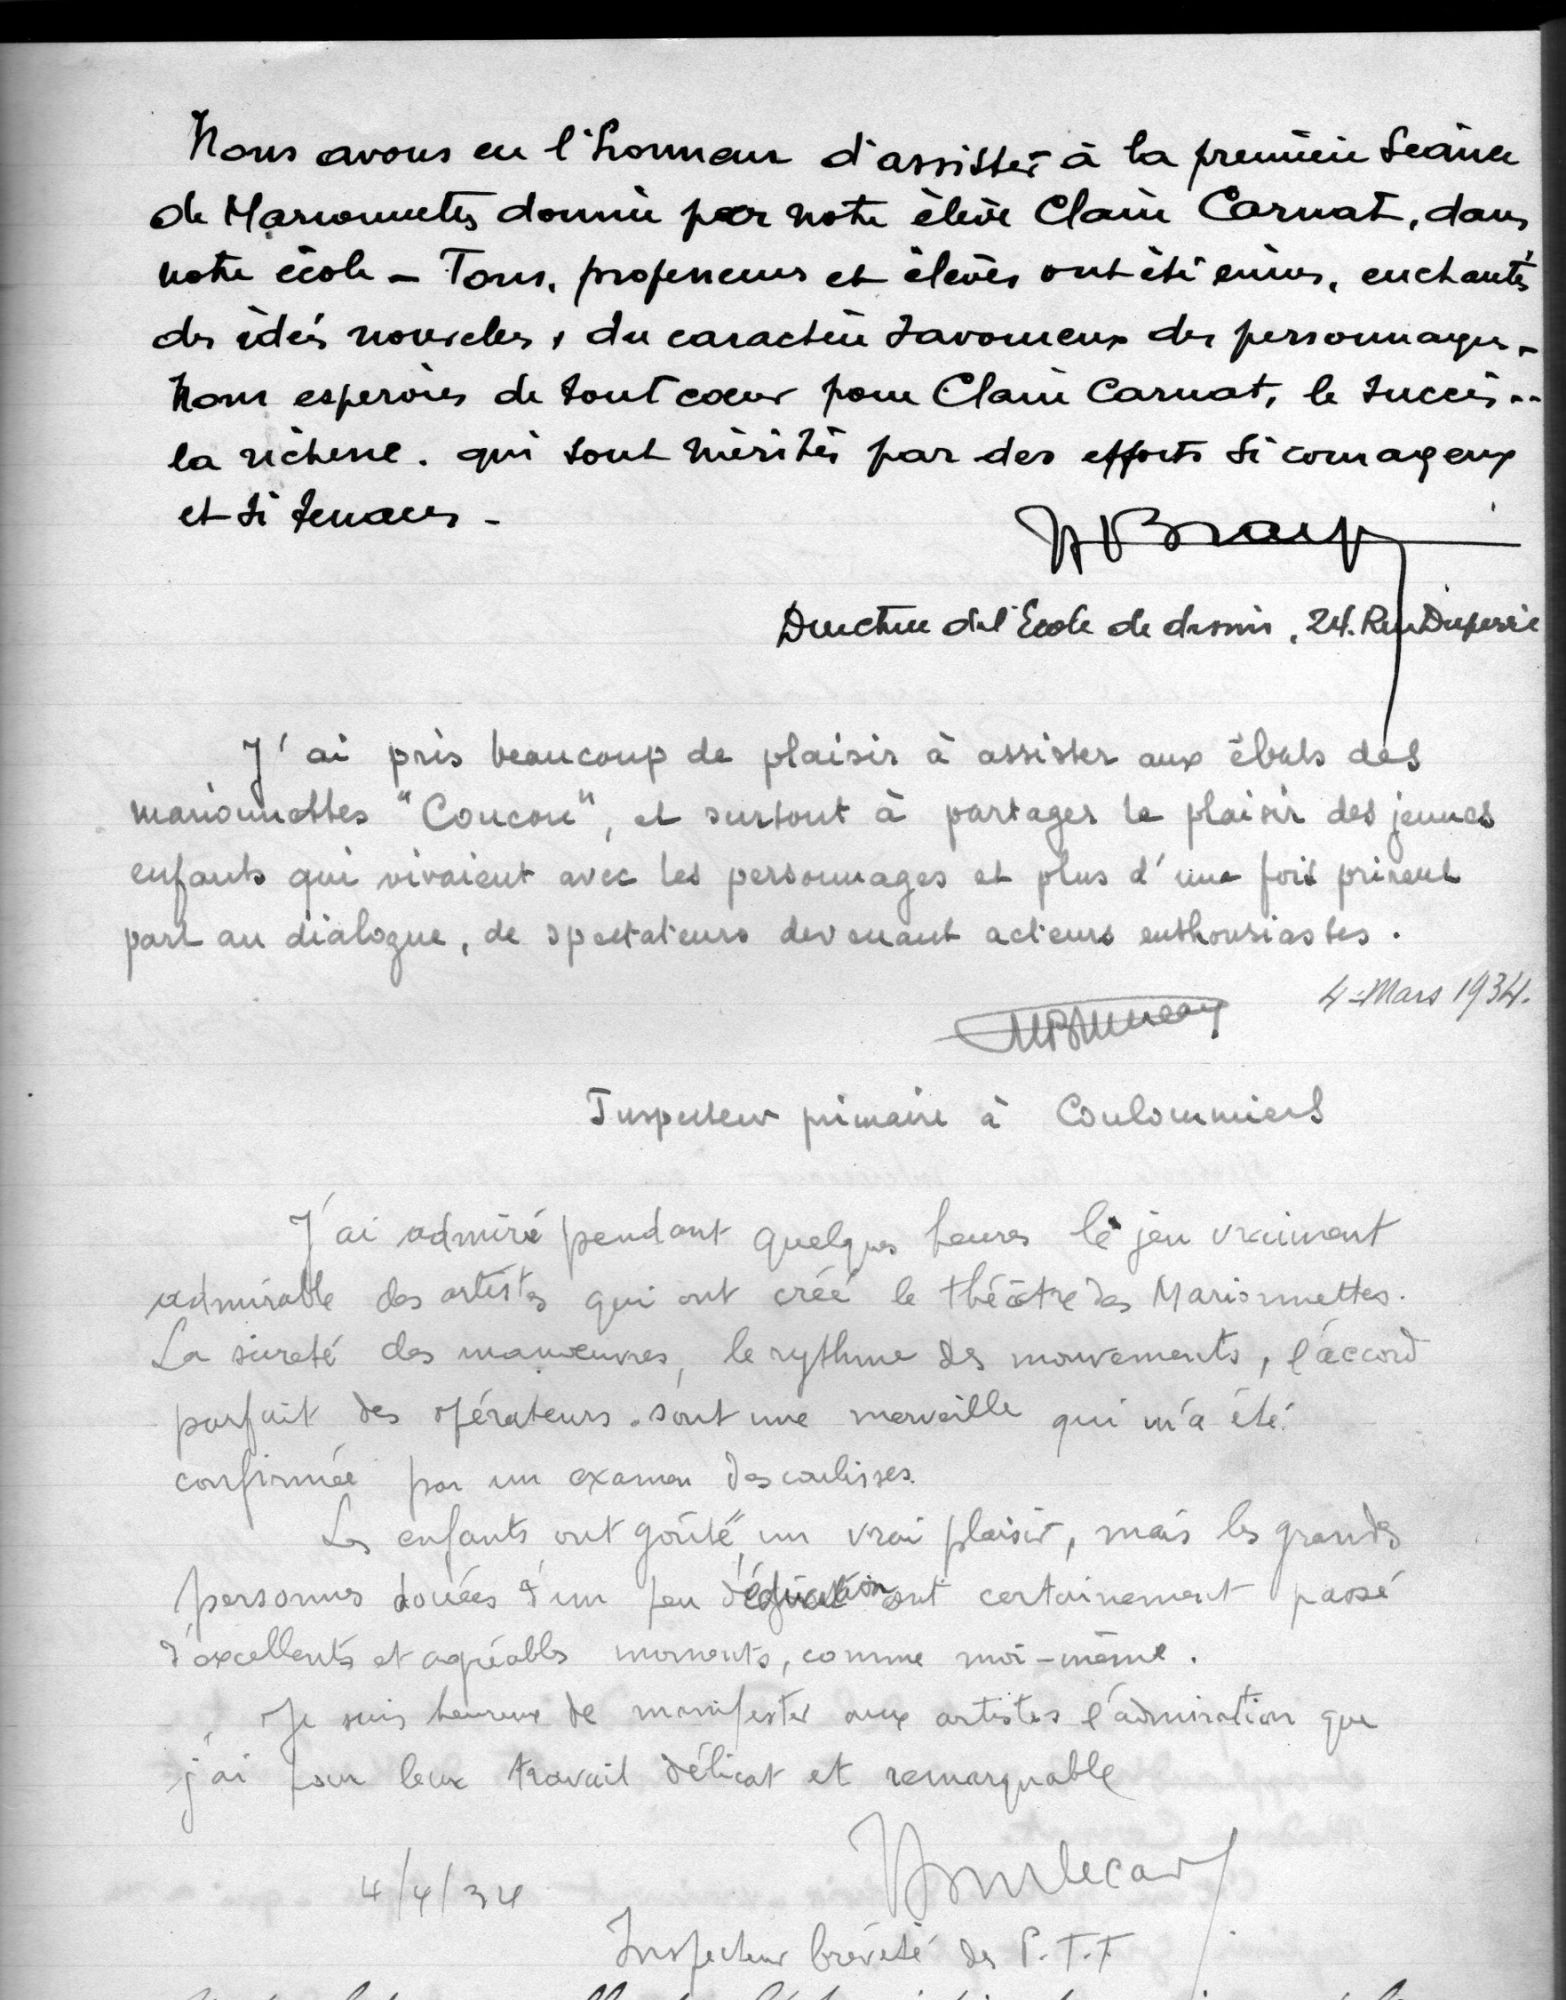 Nous avons eu l'honneur d'assister à la première séance
de Marionnettes donnée par notre élève Claire Carnat, dans
notre école - Tous, professeurs et élèves ont été émus, enchantés
des idées nouvelles, du caractère savoureux des personnages -
Nous espérons de tout cœur pour Claire Carnat, le succès..
la richesse. qui sont mérités par des efforts si courageux
et si tenaces -
Directrice de l'École de dessin, 24. Rue Duperré
J'ai pris beaucoup de plaisir à assister aux ébats des
marionnettes "Coucou", et surtout à partager le plaisir des jeunes
enfants qui vivaient avec les personnages et plus d'une fois prirent
part au dialogue, de spectateurs devenant acteurs enthousiastes.
4-Mars 1934.
Inspecteur primaire à Coulommiers
J'ai admiré pendant quelques heures le jeu vraiment
admirable des artistes qui ont créé le théâtre des Marionnettes.
La sureté des manœuvres, le rythme des mouvements, l'accord
parfait des opérateurs sont une merveille qui m'a été
confirmée par un examen des coulisses.
Les enfants ont goûté un vrai plaisir, mais les grandes
personnes douées d'un peu d'éducation ont certainement passé
d'excellents et agréables moments, comme moi-même.
Je suis heureux de manifester aux artistes l'admiration que
j'ai pour leur travail délicat et remarquable
4/4/34
Inspecteur brévété des P.T.T